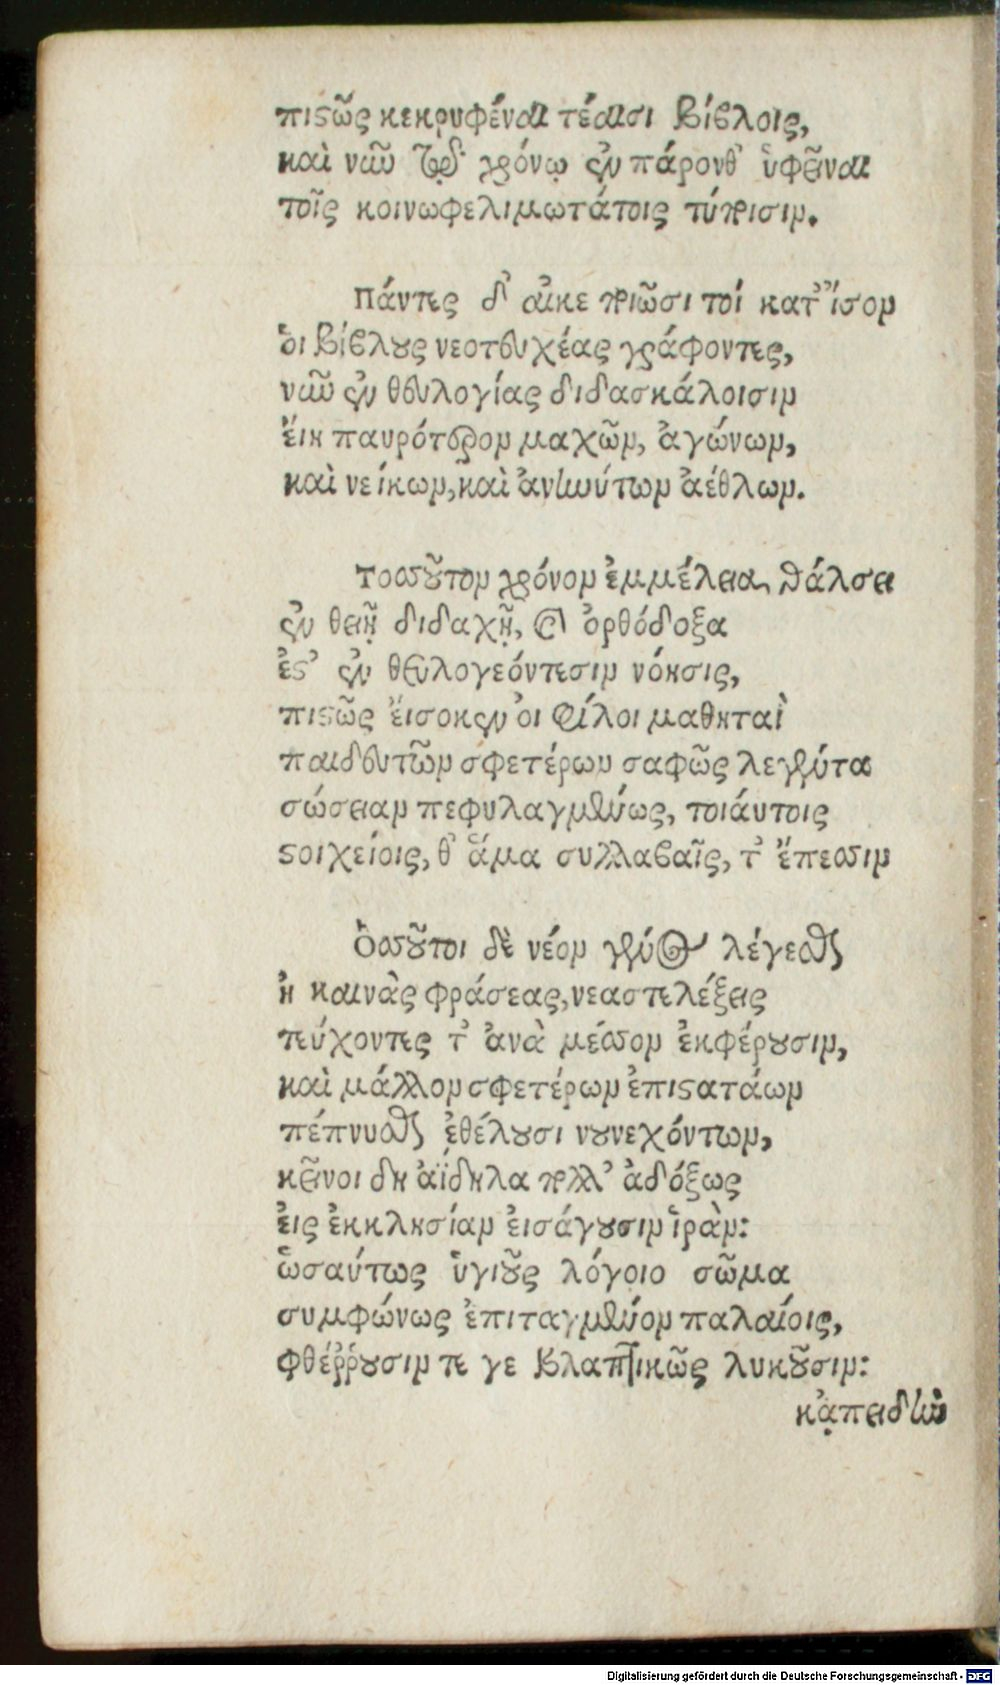 πιστῶς κεκρυφέναι τέαισι Βίβλοις,
καὶ νῦν τῷδε χρόνῳ ἐν πάρονθ' ὑφεῖναι
τοῖς κοινωφελιμωτάτοις τύποισιν.
Πάντες δ' αἴκε ποιῶσι τοί κατ' ἴσον
ὁι Βίβλους νεοτευχέας γράφοντες,
νῦν ἐν θευλογίας διδασκάλοισιν
ἔιη παυρότερον μαχῶν, ἀγώνων,
καὶ νείκων, καὶ ἀνηνύτων ἀέθλων.
Τοσοῦτον χρόνον ἐμμέλεια θάλσει
ἐν θείῃ διδαχῇ, καὶ ὀρθόδοξα
ἐστ' ἐν θευλογεόντεσιν νόησις,
πιστῶς ἔισοκεν ὁι φίλοι μαθηταὶ
παιδευτῶν σφετέρων σαφῶς λεγέντα
σώσειαν πεφυλαγμένως, τοιάυτοις
στοιχείοις, θ' ἅμα συλλαβαῖς, τ' ἔπεσσιν
Ὁσσοῦτοι δὲ νέον γένος λέγεσθαι
ἢ καινὰς φράσεας, νεαστελέξεις
τεύχοντες τ' ἀνὰ μέσσον ἐκφέρουσιν,
καὶ μᾶλλον σφετέρων ἐπιστατάων
πέπνυσθαι ἐθέλουσι νουνεχόντων,
κεῖνοι δὴ ἀΐδηλα πολλ' ἀδόξως
ἐις ἐκκλησίαν ἐισάγουσιν ἱρὰν:
ὡσαύτως ὑγιοῦς λόγοιο σῶμα
συμφώνως ἐπιταγμένον παλαίοις,
φθέρρουσιν τε γε Βλαπτικῶς λυκοῦσιν:
κᾀπειδὴν
Digitalisierung gefördert durch die Deutsche Forschungsgemeinschaft - DFG